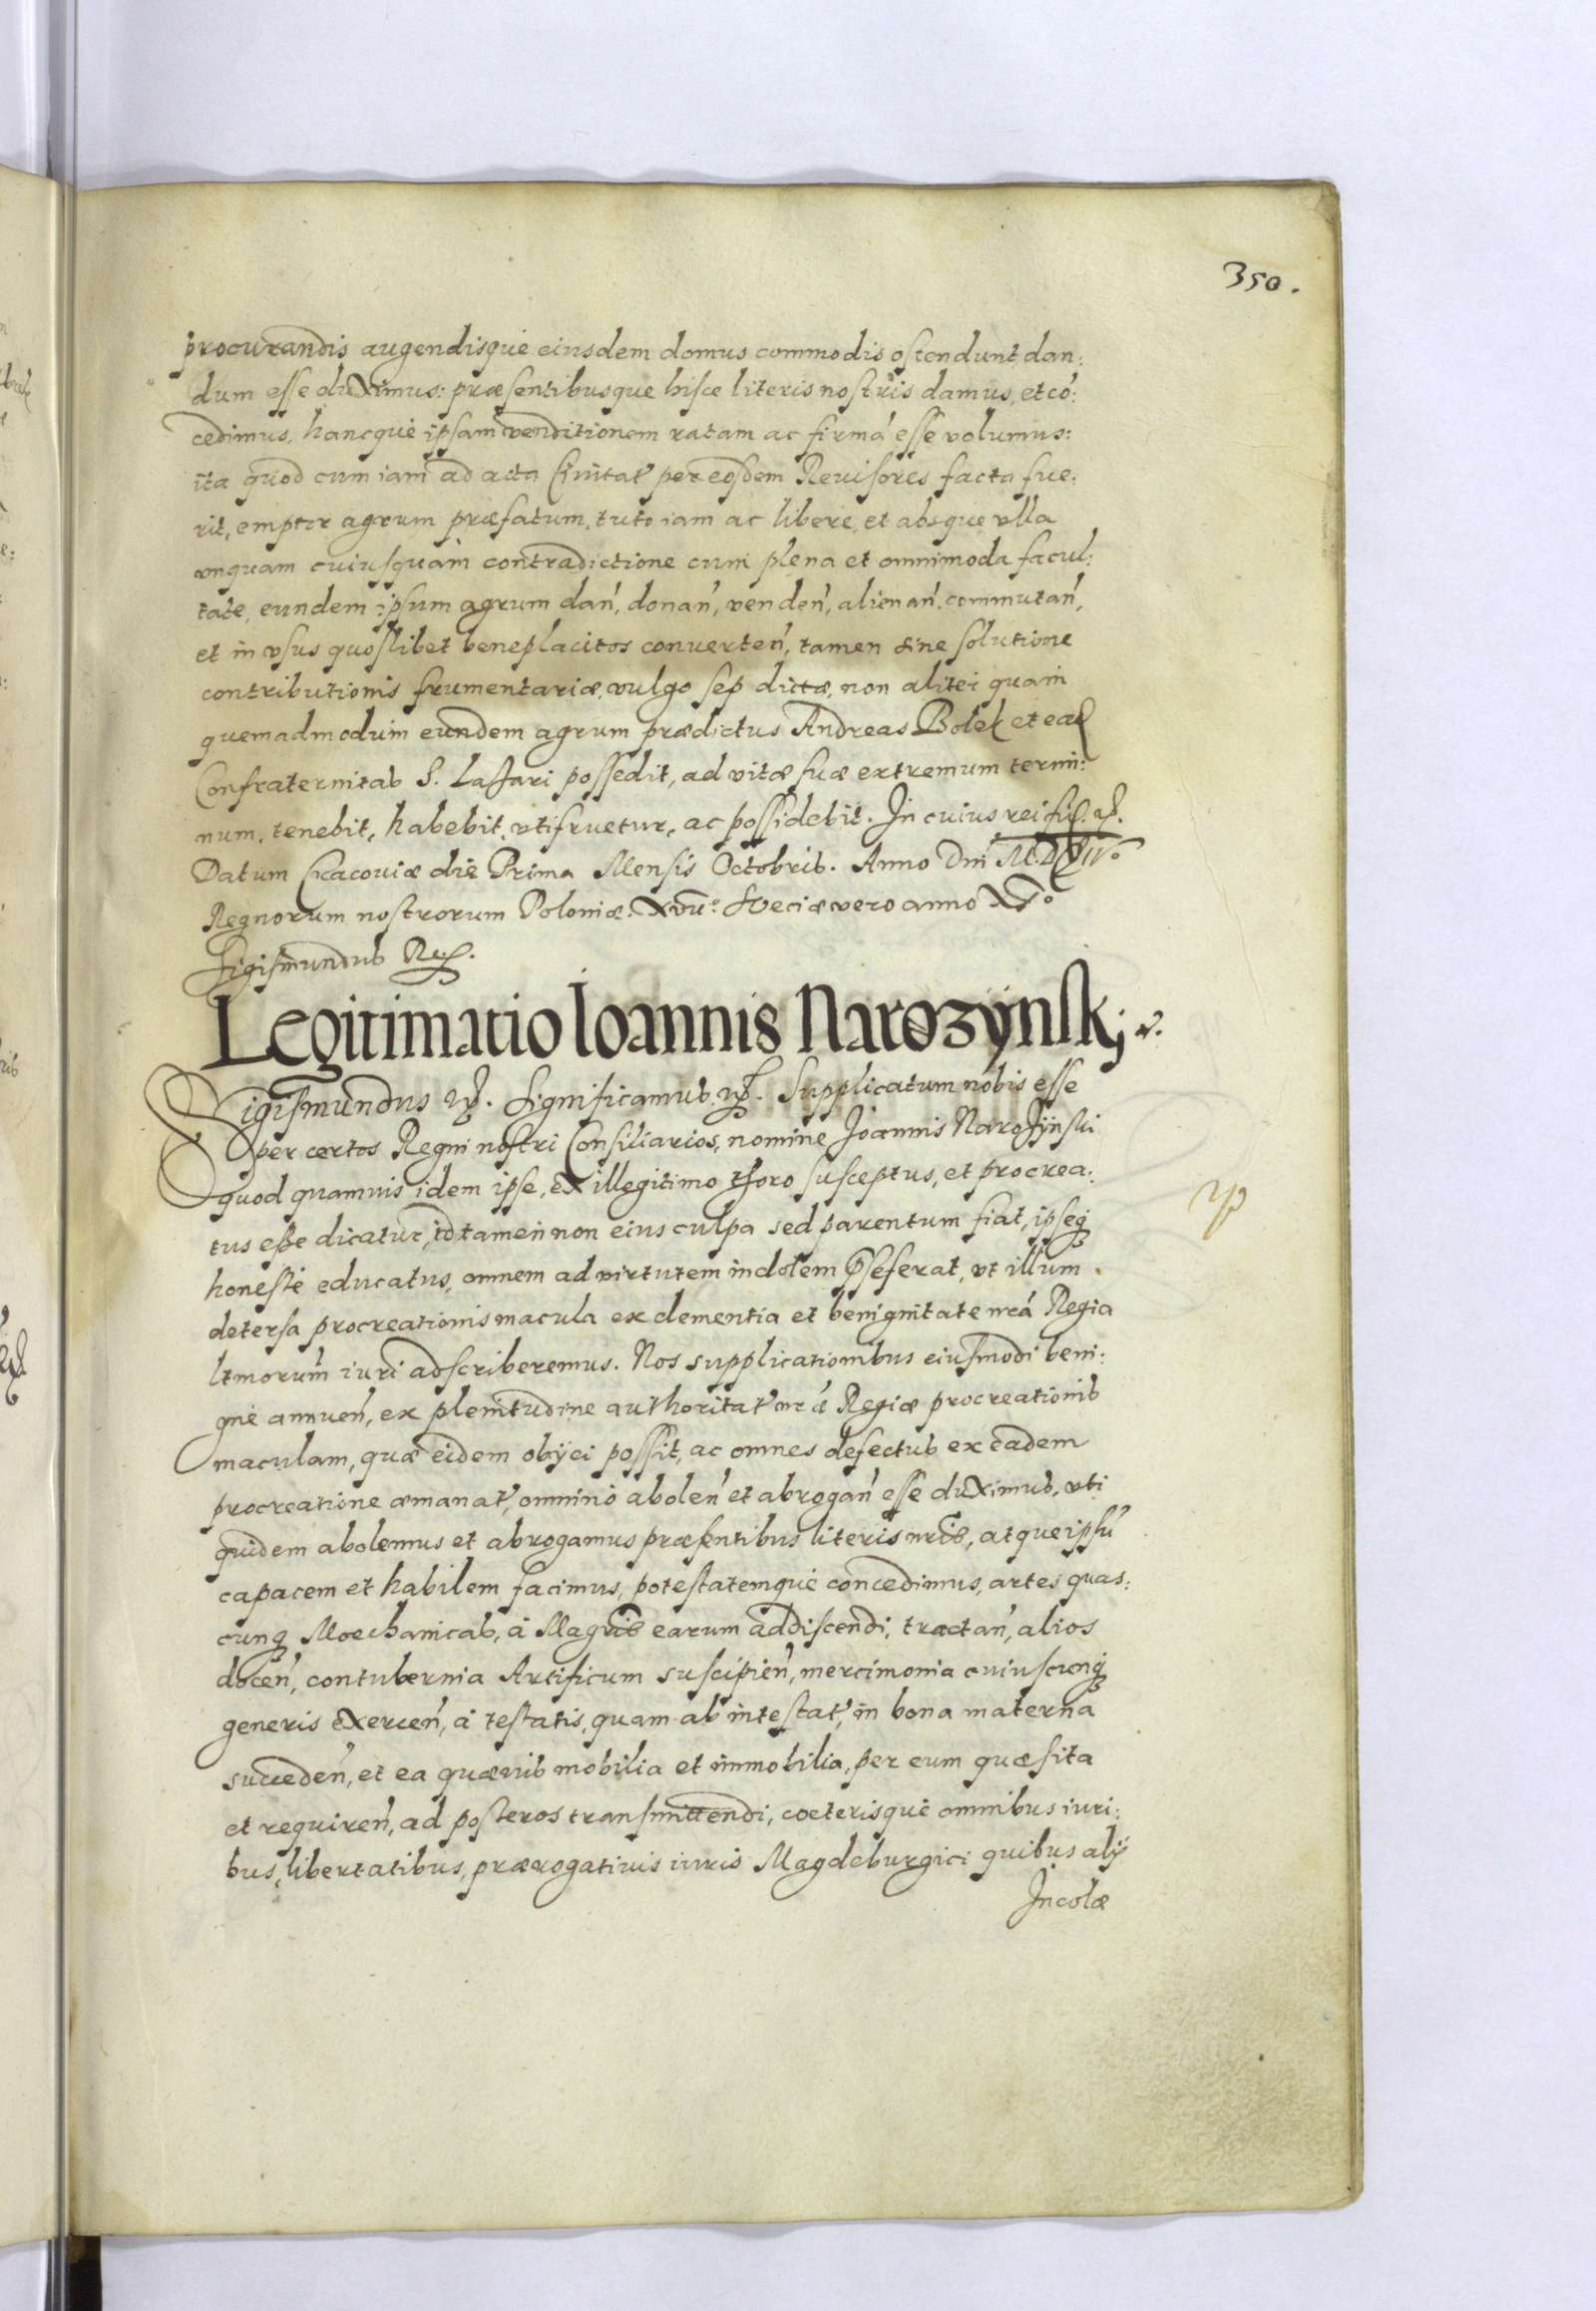 350.
procurandis augendisque eiusdem domus commodis ostendunt, dan:
dum esse duximus: præsentibusque hisce literis nostris damus, et có:
cedimus, hancque ipsam venditionem ratam ac firmá esse volumus:
ita quod cum iam ad acta Ciuitat' per eosdem Reuisores facta fue:
rit, emptor agrum præfatum, tuto iam ac libere, et absque vlla
vnquam cuiusquam contradictione cum plena et omnimoda facul:
tate, eundem ipsum agrum dan', donan', venden', alienan', commutan',
et in vsus quoslibet beneplacitos conuerten', tamen sine solutione
contributionis frumentariæ, vulgo sep dictæ, non aliter quam
quemadmodum eundem agrum prædictus Andreas Bolek et
Confraternitas S. Lazari possedit, ad vitæ suæ extremum termi:
num, tenebit, habebit, vtifruetur, ac possidebit. In cuius rei
Datum Cracouiæ die Prima Mensis Octobris. Anno Dni
Regnorum nostrorum Poloniæ. Sueciæ vero anno
Sigismundus Rex.
Legitimatio Ioannis Narozÿnskj
Sigismundus Significamus Supplicatum nobis esse
per certos Regni nostri Consiliarios, nomine Joannis Narozÿnski
quod quamuis idem ipse, ex illegitimo thoro susceptus, et procrea:
tus esse dicatur, id tamen non eius culpa sed parentum fiat, ipseq
honeste educatus, omnem ad virtutem indolem præseferat, vt illum
detersa procreationis macula ex clementia et benignitate nrá Regia
ltmorum iuri adscriberemus. Nos supplicationibus eiusmodi beni:
gne annuen', ex plenitudine authoritat' nrá Regiæ procreationis
maculam, quæ eidem obÿci possit, ac omnes defectus ex eadem
procreatione æmanat', omnino abolen' et abrogan' esse duximus, vti
quidem abolemus et abrogamus præsentibus literis nris, atque ipsú
capacem et habilem facimus, potestatemque concedimus, artes quas:
cunq Moechanicas, à Magris earum addiscendi, tractan', alios
docen', contubernia Artificum suscipien', mercimonia cuiuscunq
generis exercen', à testatis, quam ab intestat', in bona materna
succeden', et ea quæuis mobilia et immobilia, per eum quæsita
et requiren', ad posteros transmittendi, coeterisque omnibus iuri:
bus, libertatibus, prærogatiuis iuris Magdeburgici quibus alÿ
Incolæ